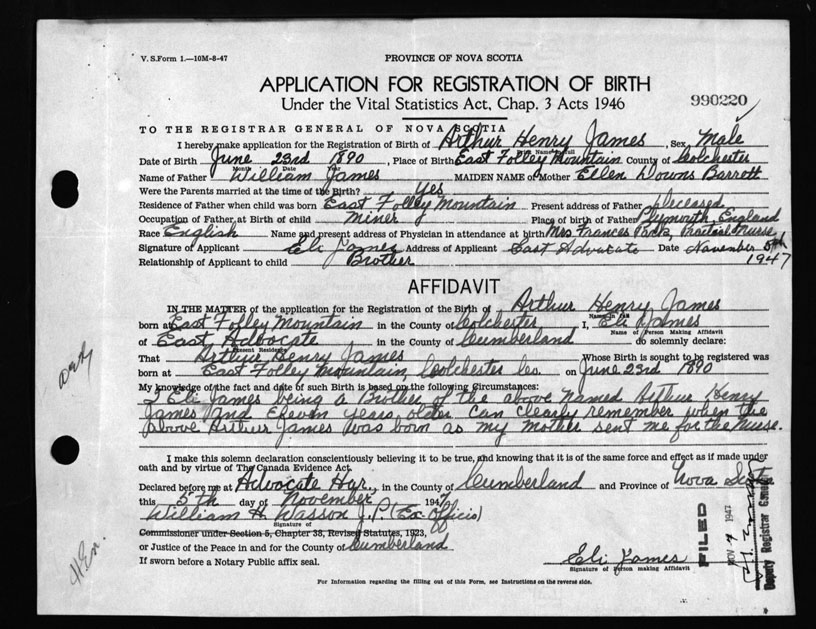 V. S. Form 1.—10M-8-47
PROVINCE OF NOVA SCOTIA
APPLICATION FOR REGISTRATION OF BIRTH
Under the Vital Statistics Act, Chap. 3 Acts 1946
990220
TO THE REGISTRAR GENERAL OF NOVA SCOTIA
I hereby make application for the Registration of Birth of Arthur Henry James, Sex Male
Date of Birth June 23rd 1890, Place of Birth East Folley Mountain County of Colchester
Month Day Year
Name of Father William James MAIDEN NAME of Mother Ellen Downs Barrott
Were the Parents married at the time of the Birth? Yes
Residence of Father when child was born East Folley Mountain Present address of Father Deceased
Occupation of Father at Birth of child Miner Place of birth of Father Plymouth, England
Race English Name and present address of Physician in attendance at birth Mrs Frances Park, Practical Nurse
Signature of Applicant Eli James Address of Applicant East Advocate Date November 5th
1947
Relationship of Applicant to child Brother
AFFIDAVIT
IN THE MATTER of the application for the Registration of the Birth of Arthur Henry James
Name in full
born at East Folley Mountain in the County of Colchester, I, Eli James
Name of Person Making Affidavit
of East Advocate in the County of Cumberland do solemnly declare:
Present Residence
That Arthur Henry James Whose Birth is sought to be registered was
born at East Folley Mountain, Colchester Co. on June 23rd 1890
My knowledge of the fact and date of such Birth is based on the following Circumstances:
I Eli James being a Brother of the above named Arthur Henry
James and Eleven years older can clearly remember when the
above Arthur James was born as my mother sent me for the Nurse.
I make this solemn declaration conscientiously believing it to be true, and knowing that it is of the same force and effect as if made under
oath and by virtue of The Canada Evidence Act.
Declared before me at Advocate Hgr., in the County of Cumberland and Province of Nova Scotia
this 5th day of November 1947
William H. Wasson J.P. (Ex Officio)
Signature of
Commissioner under Section 5, Chapter 38, Revised Statutes, 1923,
or Justice of the Peace in and for the County of Cumberland
If sworn before a Notary Public affix seal.
Eli James
Signature of Person making Affidavit
FILED
NOV 7 1947
Deputy Registrar General
For Information regarding the filling out of this Form, see Instructions on the reverse side.